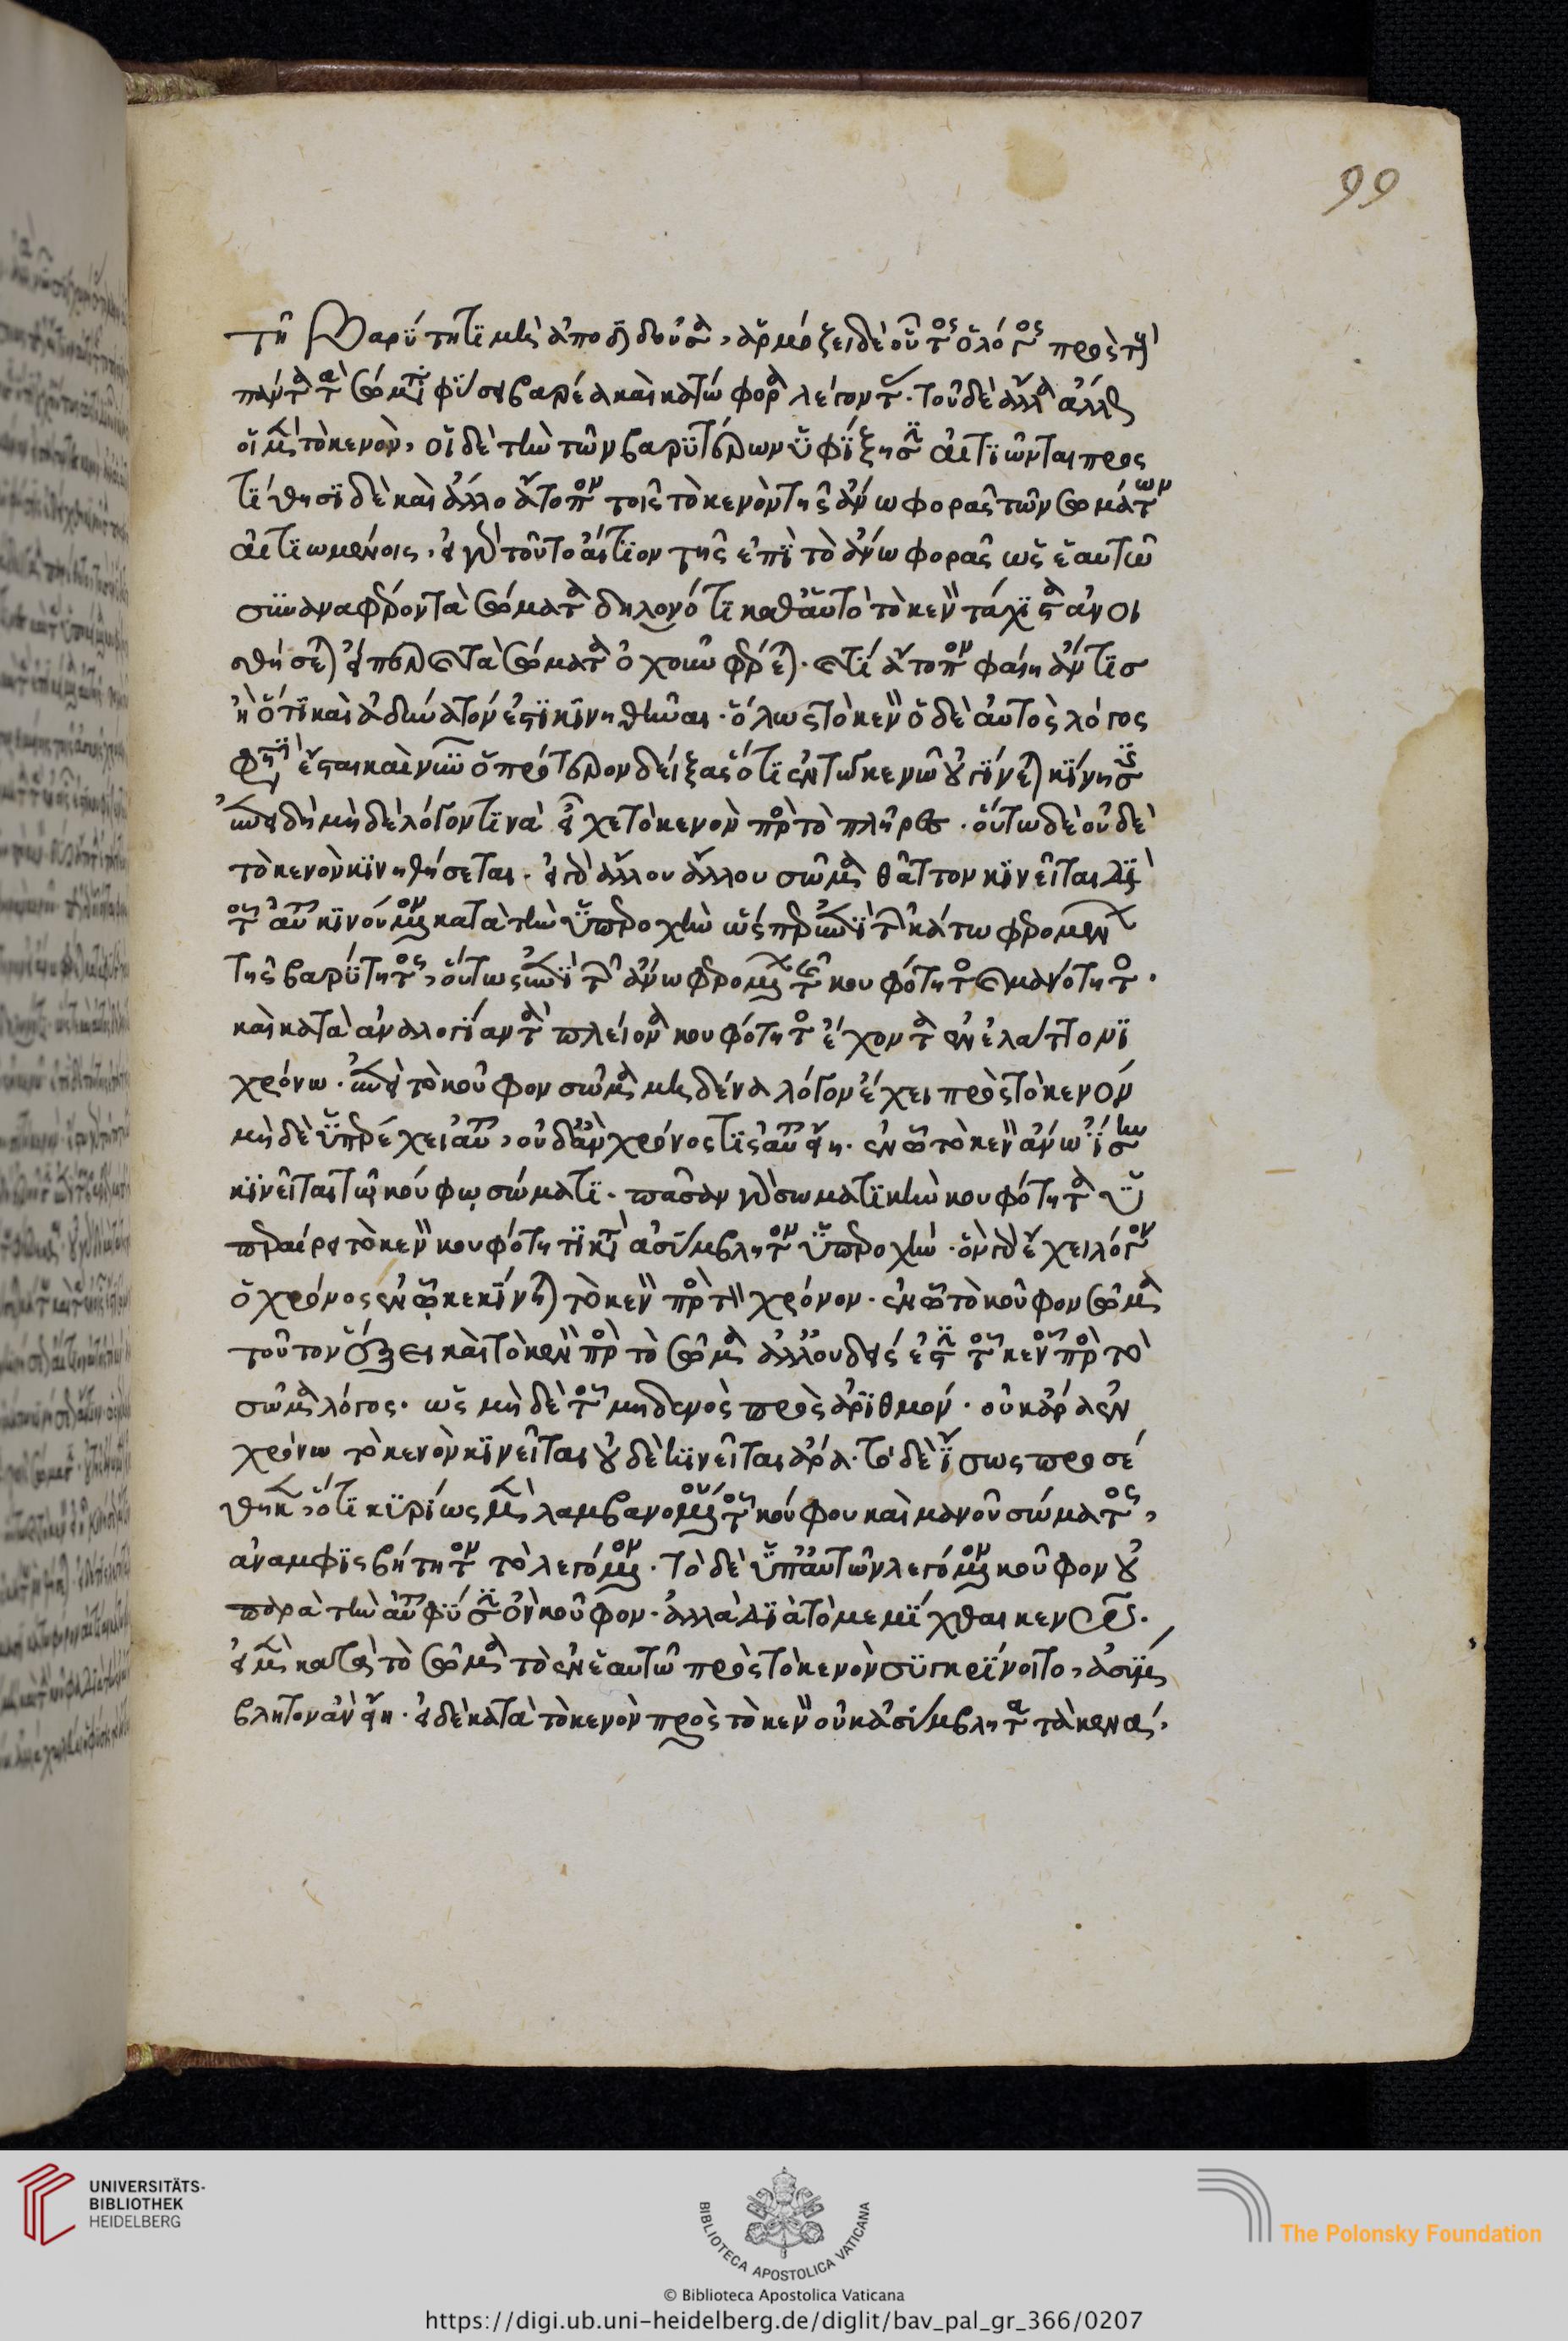 99
τῆ βαρύτητι μὴ ἀποδιδοῦσα, ἁρμόζει δὲ οὗτος ὁ λόγος πρὸς τοὺς
πάντα τὰ σώματα φύσει βαρέα καὶ κάτω φορὰ λέγοντας. τοῦ δὲ ἄλλα ἄλλως
οἱ μὲν τὸ κενὸν, οἱ δὲ τὴν τῶν βαρυτέρων ὑφίζησιν αἰτιῶνται προς
τίθησι δὲ καὶ ἄλλο ἄτοπον τοῖς τὸ κενὸν τῆς ἄνω φορᾶς τῶν σωμάτων
αἰτιωμένοις, εἰ γὰρ τοῦτο αἴτιον τῆς ἐπὶ τὸ ἄνω φορᾶς ὡς ἑαυτῶ
συναναφέροντα σώματα δηλονότι καθαὑτὸ τὸ κενὸν τάχιστα ἀνοι
σθήσεται εἴπερ καὶ τὰ σώματα ὀχοιῶ φέρεται. καὶ τί ἄτοπον φαίη ἄν τις
ἢ ὅτι καὶ ἀδύνατόν ἐστι κινηθῆναι. ὅλως τὸ κενὸν ὁ δὲ αὐτὸς λόγος
φησὶν ἔσται καὶ νῦν ὁ πρότερον δείξας ὅτι ἐν τῶ κενῶ οὐ γίνεται κίνησις
ἐπεὶ δὴ μὴ δὲ λόγον τινὰ εἶχε τὸ κενὸν πρὸς τὸ πλῆρες. οὕτω δὲ οὐδὲ
τὸ κενὸν κινηθήσεται. εἰ γὰρ ἄλλου ἄλλου σῶμα θᾶττον κινεῖται διὰ
τοῦ αὐτοῦ κινούμενον κατὰ τὴν ὑπεροχὴν ὥσπερ ἐπὶ τῶν κάτω φερομένων
τῆς βαρύτητος, οὕτως ἐπὶ τῶν ἄνω φερομένων τῆς κουφότητος καὶ μανότητος.
καὶ κατὰ ἀναλογίαν τὰ πλείονα κουφότητα ἔχοντα ἐν ἐλάττονι
χρόνω. ἐπεὶ τὸ κοῦφον σῶμα μηδένα λόγον ἔχει πρὸς τὸ κενόν
μὴ δὲ ὑπερέχει αὐτοῦ, οὐδ' ἂν χρόνος τις αὐτοῦ εἴη. ἐν ὧ τὸ κενὸν ἄνω ἴσην
κινεῖται τῶ κούφω σώματι. πᾶσαν γὰρ σωματικὴν κουφότητα ὑ
περαίρει τὸ κενὸν κουφότητι κατὰ ἀσύμβλητον ὑπεροχὴν. ὃν γὰρ ἔχει λόγον
ὁ χρόνος ἐν ὧ κεκίνηται τὸ κενὸν πρὸς τὸν χρόνον. ἐν ὧ τὸ κοῦφον σῶμα
τοῦτον ἕξει καὶ τὸ κενὸν πρὸς τὸ σῶμα ἀλλ' οὐδείς ἐστι τοῦ κενοῦ πρὸς τὸ
σῶμα λόγος. ὡς μὴ δὲ τοῦ μηδενὸς πρὸς ἀριθμόν. οὐκ ἄρα ἐν
χρόνω τὸ κενὸν κινεῖται οὐδὲ κινεῖται ἄρα. τὸ δὲ ἴσως προσέ
θηκεν, ὅτι κυρίως μὲν λαμβανομένου τοῦ κούφου καὶ μανοῦ σώματος,
ἀναμφισβήτητον τὸ λεγόμενον. τὸ δὲ ὑπ' αὐτῶν λεγόμενον κοῦφον οὐ
παρὰ τὴν αὐτοῦ φύσιν ὂν κοῦφον. ἀλλὰ διὰ τὸ μεμίχθαι κενοῖς.
εἰ μὲν κατὰ τὸ σῶμα τὸ ἐν ἑαυτῶ πρὸς τὸ κενὸν συγκρίνοιτο, ἀσύμ
βλητον ἂν εἴη. εἰ δὲ κατὰ τὸ κενὸν πρὸς τὸ κενὸν οὐκ ἀσύμβλητα τὰ κενά,
UNIVERSITÄTS-
BIBLIOTHEK
HEIDELBERG
BIBLIOTECA APOSTOLICA VATICANA
The Polonsky Foundation
© Biblioteca Apostolica Vaticana
https://digi.ub.uni-heidelberg.de/diglit/bav_pal_gr_366/0207